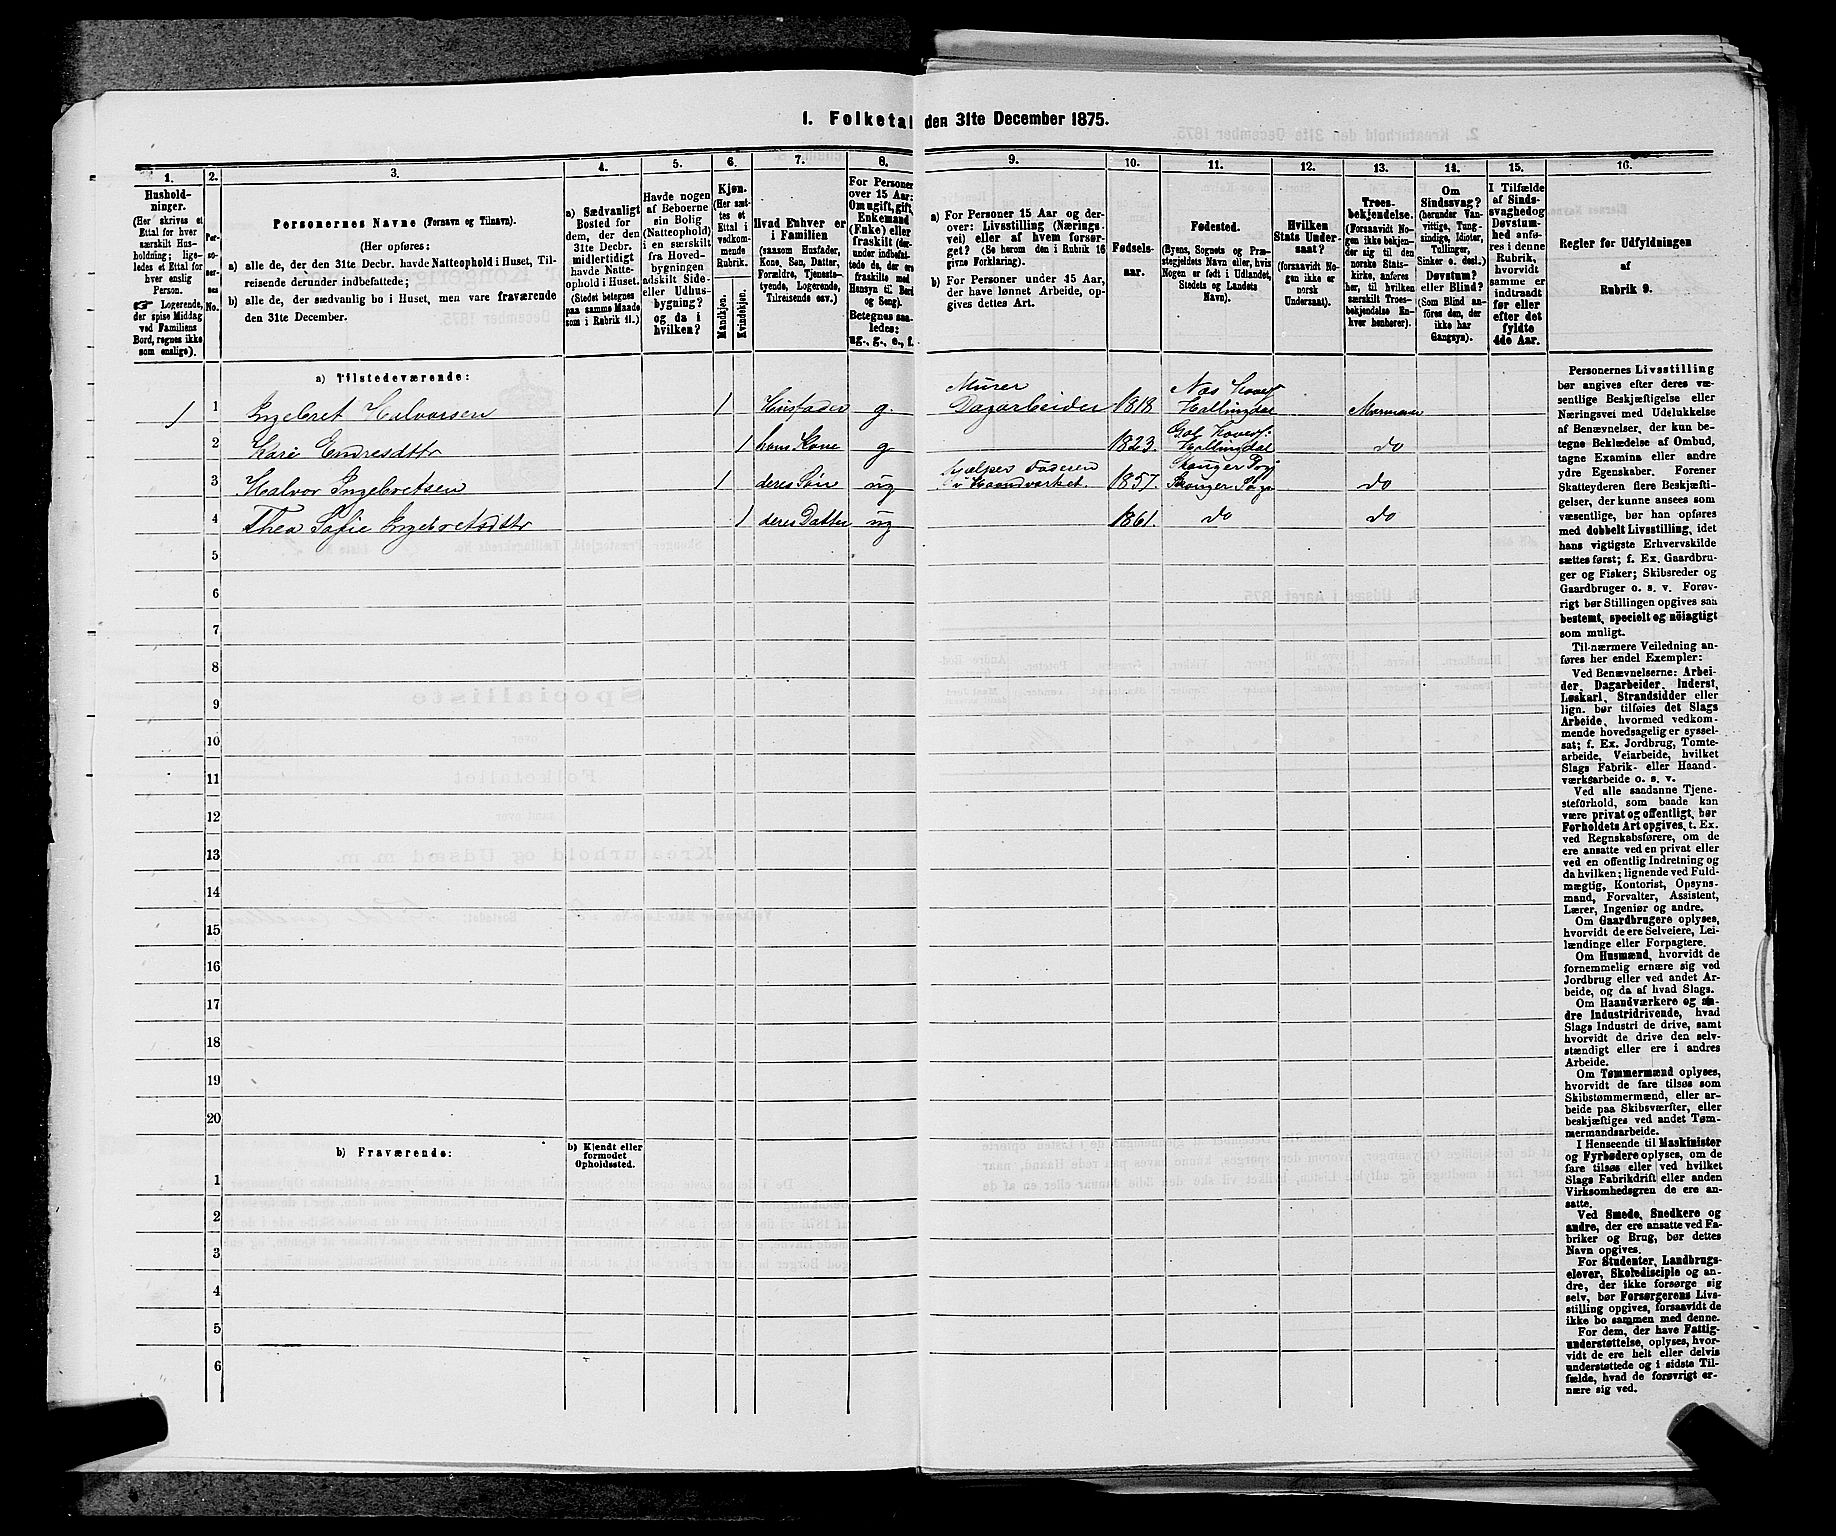 1. Folketal den 31te December 1875.
1.
2.
3.
4.
5.
6.
7.
8.
9.
10.
11.
12.
13.
14.
15.
16.
Hushold-
ninger.
(Her skrives et
Ettal for hver
særskilt Hus-
holdning; lige-
ledes et Ettal for
hver enslig
Person.
☞ Logerende,
der spise Middag
ved Familiens
Bord, regnes ikke
som enslige).
Per-
so-
ner-
nes
No.
Personernes Navne (Fornavn og Tilnavn).
(Her opføres:
a) alle de, der den 31te Decbr. havde Natteophold i Huset, Til-
reisende derunder indbefattede;
b) alle de, der sædvanlig bo i Huset, men vare fraværende
den 31te December.
a) Sædvanligt
Bosted for
dem, der den
31te Decbr.
midlertidigt
havde Natte-
ophold i Huset.
(Stedet betegnes
paa samme Maade
som i Rubrik 11.)
Havde nogen
af Beboerne
sin Bolig
(Natteophold)
i en særskilt
fra Hoved-
bygningen
adskilt Side-
eller Udhus-
bygning?
og da i
hvilken?
Kjøn.
(Her sæt-
tes et
Ettal i
vedkom-
mende
Rubrik.
Mandkjøn.
Kvindekjøn.
Hvad Enhver er
i Familien
(saasom Husfader,
Kone, Søn, Datter,
Forældre, Tjeneste-
tyende, Logerende,
Tilreisende osv.)
For Personer
over 15 Aar:
Om ugift, gift,
Enkemand
(Enke) eller
fraskilt (der-
under indbefat-
tede de, der ere
fraskilte med
Hensyn til Bord
og Seng).
Betegnes saa-
ledes:
ug., g., e., f.
a) For Personer 15 Aar og der-
over: Livsstilling (Nærings-
vei) eller af hvem forsør-
get? (Se herom den i Rubrik 16
givne Forklaring).
b) For Personer under 15 Aar,
der have lønnet Arbeide, op-
gives dettes Art.
Fødsels-
aar.
Fødested.
(Byens, Sognets og Præ-
stegjeldets Navn eller, hvis
Nogen er født i Udlandet,
Stedets og Landets
Navn).
Hvilken
Stats Under-
saat?
(forsaavidt No-
gen ikke er
norsk
Undersaat).
Troes-
bekjendelse.
(Forsaavidt No-
gen ikke bekjen-
der sig til den
norske Stats-
kirke, anføres
her, til hvilken
særskilt Troes-
bekjendelse En-
hver henhører).
Om
Sindssvag?
(herunder Van-
vittige, Tung-
sindige, Idioter,
Tullinger,
Sinker o. desl.)
Døvstum?
eller Blind?
(Som Blind an-
føres den, der
ikke har
Gangsyn).
I Tilfælde
af Sinds-
svaghed og
Døvstum-
hed anfø-
res i denne
Rubrik,
hvorvidt
samme er
indtraadt
før eller
efter det
fyldte
4de Aar.
Regler for Udfyldningen
af
Rubrik 9.
a) Tilstedeværende:
1 1 Ingebret Halvorsen 1 Husfader g. Murer Dagarbeider 1818 Næs Hoveds. Hallingdal Mormon
2 Kari Endresdttr 1 hans Kone g 1823. Gol Hoveds: Hallingdal do
3 Halvor Ingebretsen 1 deres Søn ug hjælper Faderen v. Haandværket. 1857. do
4 Thea Sofie Ingebretsdttr 1 deres Datter ug 1861. do do
5
6
7
8
9
10
11
12
13
14
15
16
17
18
19
20
b) Fraværende:
b) Kjendt eller
formodet
Opholdssted.
1
2
3
4
5
6
Personernes Livsstilling
bør angives efter deres væ-
sentlige Beskjæftigelse eller
Næringsvei med Udelukkelse
af Benævnelser, der kun be-
tegne Beklædelse af Ombud,
tagne Examina eller andre
ydre Egenskaber. Forener
Skatteyderen flere Beskjæfti-
gelser, der kunne ansees som
væsentlige, bør han opføres
med dobbelt Livsstilling, idet
hans vigtigste Erhvervskilde
sættes først; f. Ex. Gaardbru-
ger og Fisker; Skibsreder og
Gaardbruger o. s. v. Forøv-
rigt bør Stillingen opgives saa
bestemt, specielt og nöiagtigt
som muligt.
Til nærmere Veiledning an-
føres her endel Exempler:
Ved Benævnelserne: Arbei-
der, Dagarbeider, Inderst,
Løskarl, Strandsidder eller
lign. bør tilføies det Slags
Arbeide, hvormed vedkom-
mende hovedsagelig er syssel-
sat; f. Ex. Jordbrug, Tomte-
arbeide, Veiarbeide, hvilket
Slags Fabrik- eller Haand-
værksarbeide o. s. v.
Ved alle saadanne Tjene-
steforhold, som baade kan
være privat og offentligt, bør
Forholdets Art opgives, t. Ex.
ved Regnskabsførere, om de
ere ansatte ved en privat eller
ved en offentlig Indretning og
da hvilken; lignende ved Fuld-
mægtig, Kontorist, Opsyns-
mand, Forvalter, Assistent,
Lærer, Ingeniør og andre.
Om Gaardbrugere oplyses,
hvorvidt de ere Selveiere, Lei-
lændinge eller Forpagtere.
Om Husmænd, hvorvidt de
fornemmelig ernære sig ved
Jordbrug eller ved andet Ar-
beide, og da af hvad Slags.
Om Haandværkere og an-
dre Industridrivende, hvad
Slags Industri de drive, samt
hvorvidt de drive den selv-
stændigt eller ere i andres
Arbeide.
Om Tømmermænd oplyses,
hvorvidt de fare tilsøs som
Skibstømmermænd, eller ar-
beide paa Skibsværfter, eller
beskjæftiges ved andet Tøm-
mermandsarbeide.
I Henseende til Maskinister
og Fyrbødere oplyses, om de
fare tilsøs eller ved hvilket
Slags Fabrikdrift eller anden
Virksomhedsgren de ere an-
satte.
Ved Smede, Snedkere og
andre, der ere ansatte ved Fa-
briker og Brug, bør dettes
Navn opgives.
For Studenter, Landbrugs-
elever, Skoledisciple og an-
dre, der ikke forsørge sig
selv, bør Forsørgerens Livs-
stilling opgives, forsaavidt de
ikke bo sammen med denne.
For dem, der have Fattig-
understøttelse, oplyses, hvor-
vidt de ere helt eller delvis
understøttede og i sidste Til-
fælde, hvad de forøvrigt er-
nære sig ved.